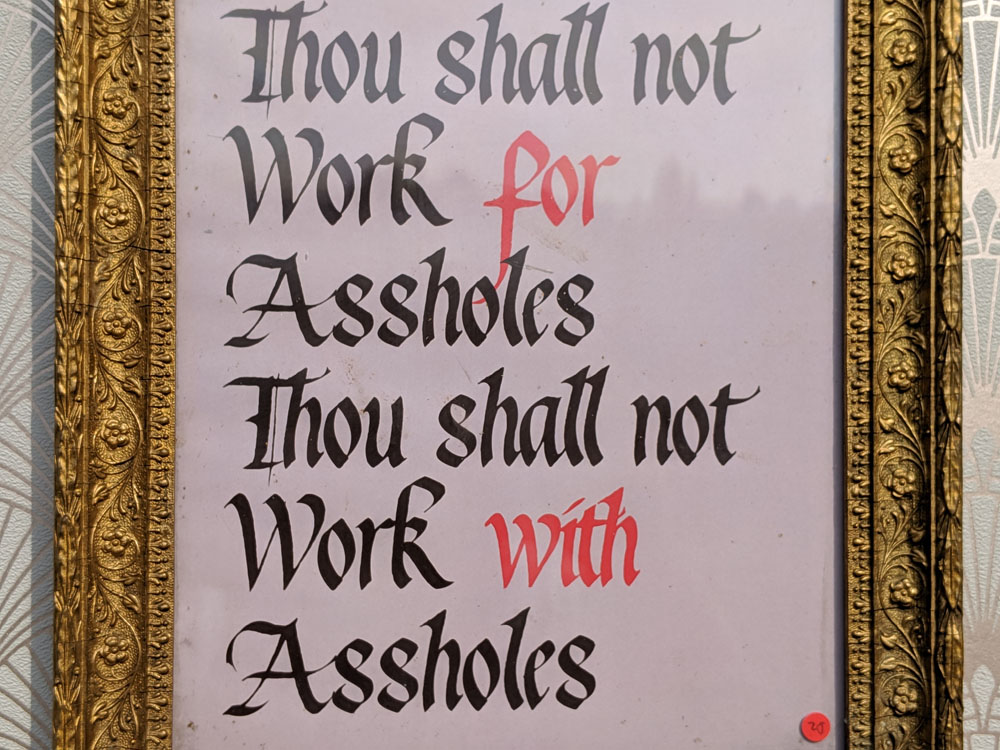 Thou shall not
Work for
Assholes
Thou shall not
Work with
Assholes
25